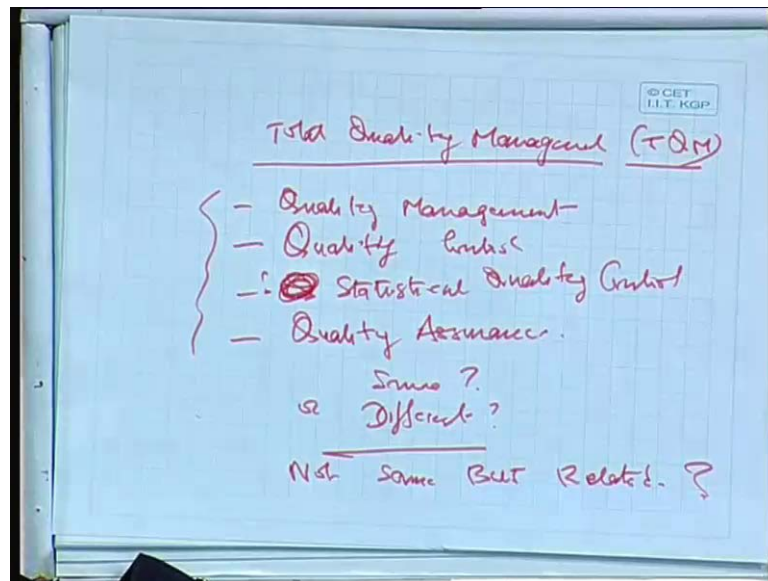 © CET
I.I.T. KGP
Total Quality Management (TQM)
- Quality Management
- Quality Control
- Statistical Quality Control
- Quality Assurance.
Same ?
or Different ?
Not Same But Related. ?